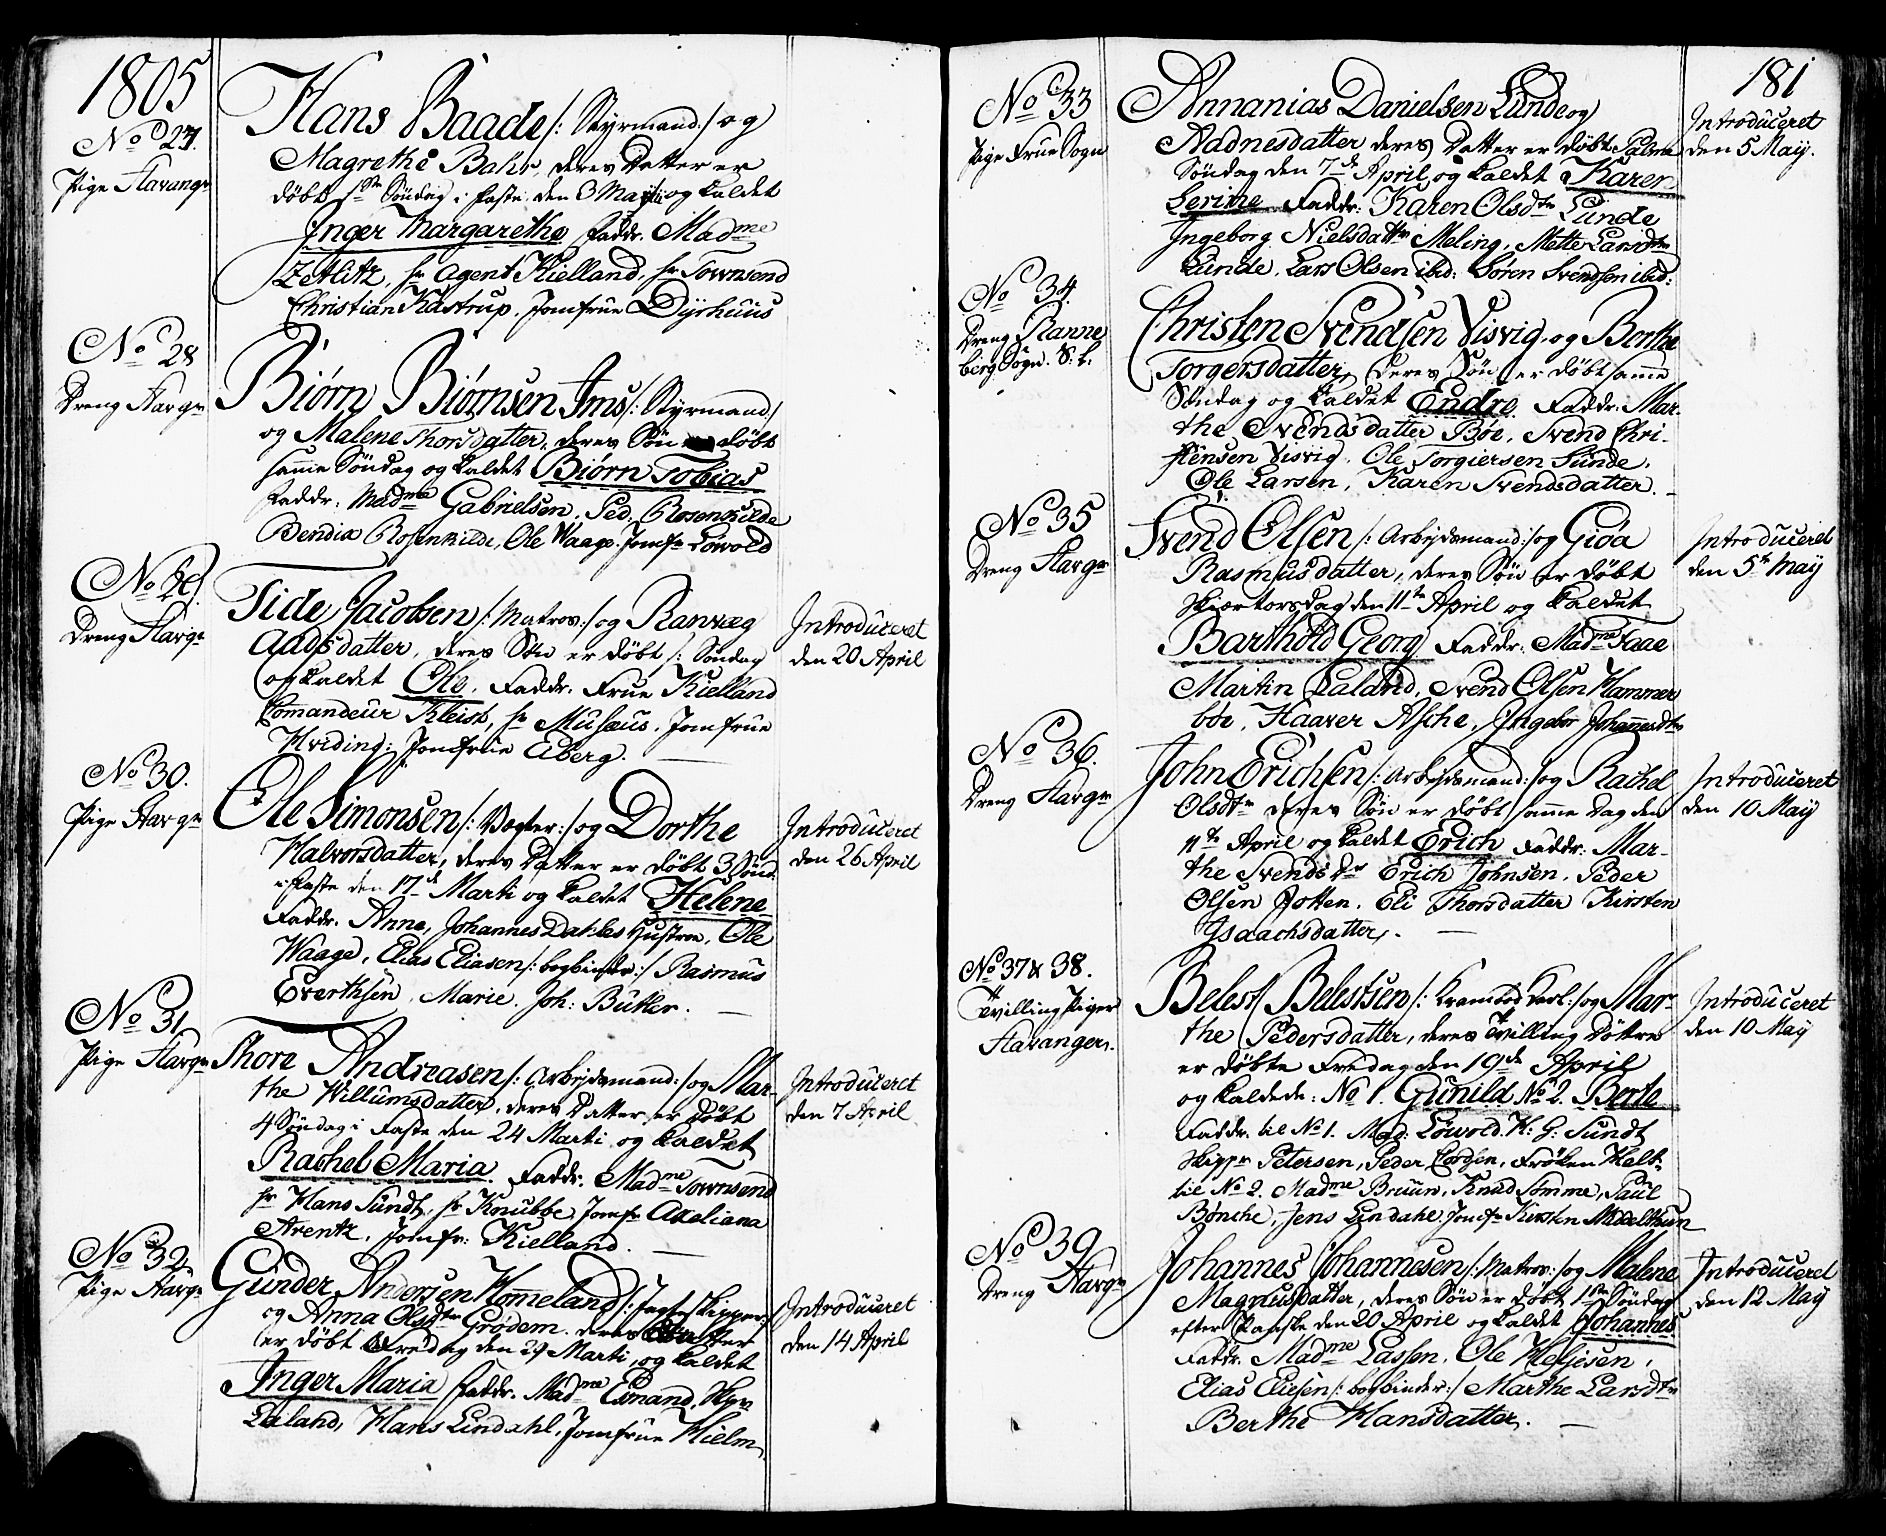 1805
No 27.
Pige Stavangr
Hans Baade /: Styrmand :/ og
Magrethe Bahr, deres Datter er
døbt 1ste Søndag i Faste den 3 Martii og kaldet
Inger Margarethe Faddr. Madme
Zetlitz, hr Agent Kielland, hr Townsend
Christian Kastrup, Jomfrue Dyrhuus
No 28
Dreng Stavgr
Biørn Biørnsen Ims /: Styrmand /
og Malene Thorsdatter, deres Søn døbt
samme Søndag og kaldet Biørn Tobias
Faddr: Madme Gabrielsen, Ped. Rosenkilde
Bendix Rosenkilde, Ole Waage, Jomfr Løwold
No 29.
Dreng Stavgr
Tide Jacobsen /: Matros :/ og Ranvæg
Aadsdatter, deres Søn er døbt /: Søndag
og kaldet Ole. Faddr. Frue Kielland
Comandeur Kleist, hr Musæus, Jomfrue
Hviding, Jomfrue Aberg.
Introduceret
den 20 April
No 30.
Pige Stavgr
Ole Simonsen /: Vægter :/ og Dorthe
Halvorsdatter, deres Datter er døbt 3 Sønd.
i Faste den 17de Marti og kaldet Helene
Faddr. Anna, Johannes Dahles Hustroe, Ole
Waage, Elias Eliasen /: bogbinder :/ Rasmus
Everthsen, Marie Joh: Butler.
Introduceret
den 26 April
No 31
Pige Stavgr
Thore Andreasen /: Arbejdsmand :/ og Mar-
the Willumsdatter, deres Datter er døbt
4 Søndag i Faste den 24 Marti og kaldet
Rachel Maria. Faddr. Madme Townsend
hr Hans Sundt, hr Knubbe, Jomfr Axeliana
Arentz, Jomfr: Kielland.
Introduceret
den 7 April
No 32
Pige Stavgr
Gunder Andersen Homeland /: Jagteskipper :/
og Anna Olsdtr Grødem. deres Datter
er døbt Fredag den 29 Marti og kaldet
Inger Maria Faddr. Madme Esmand, Skpr
Laland, Hans Lindahl, Jomfrue Hielm
Introduceret
den 14 April
181
No 33
Pige Frue Sogn
Annanias Danielsen Lunde og
Aadnesdatter deres Datter er døbt Palme
Søndag den 7de April og kaldet Karen
Serine Faddr: Karen Olsdtr Lunde
Ingeborg Nielsdattr Meling, Mette Larsdtr
Lunde, Lars Olsen ibid: Søren Svendsen ibid:
Introduceret
den 5 May.
No 34.
Dreng Ranne
berg Sogn. S: k:
Christen Svendsen Visvig, og Berthe
Torgersdatter, deres Søn er døbt samme
Søndag og kaldet Endre. Faddr: Mar-
the Svendsdatter Bøe, Svend Chri-
stensen Visvig, Ole Torgiersen Sunde,
Ole Larsen, Karen Svendsdatter.
No 35
Dreng Stavgr
Svend Olsen /: Arbejdsmand :/ og Giøa
Rasmusdatter, deres Søn er døbt
Skiærtorsdag den 11te April og kaldet
Barthold Georg Faddr: Madme Faae
Martin Laland, Svend Olsen Hammer
bøe, Haaver Asche, Ingebor Johannesdtr
Introduceret
den 5te May
No 36.
Dreng Stavgr
John Erichsen /: Arbejdsmand :/ og Rachel
Olsdtr deres Søn er døbt samme Dag den
11te April og kaldet Erich Faddr: Mar-
the Svendsdr Erich Johnsen, Peder
Olsen Jotten, Eli Thorsdatter Kirsten
Isaachsdatter,
Introduceret
den 10 May
No 37 & 38.
Tvilling Piger
Stavanger.
Belest Belestsen /: Krambod Karl :/ og Mar-
the Pedersdatter, deres Tvilling Døttre
er døbte Fredag den 19de April
og kaldede: No 1. Gunild No 2. Berte
Faddr. til No 1. Mad: Løwold. H: G: Sundt
Skippr Petersen, Peder Cordsen, Frøken Helt.
til No 2. Madme Bruun, Knud Somme, Paul
Bønche, Jens Lindahl. Jomfr Kirsten Middelthun
Introduceret
den 10 May
No 39
Dreng Stavgr
Johannes Johannesen /: Matros :/ og Malene
Magnusdatter, deres Søn er døbt 1ste Søndag
efter Paaske den 20 April og kaldet Johannes
Faddr. Madme Lassen, Ole Heljesen,
Elias Eliesen /: bogbinder :/ Marthe Larsdtr
Berthe Hansdatter.
Introduceret
den 12 May